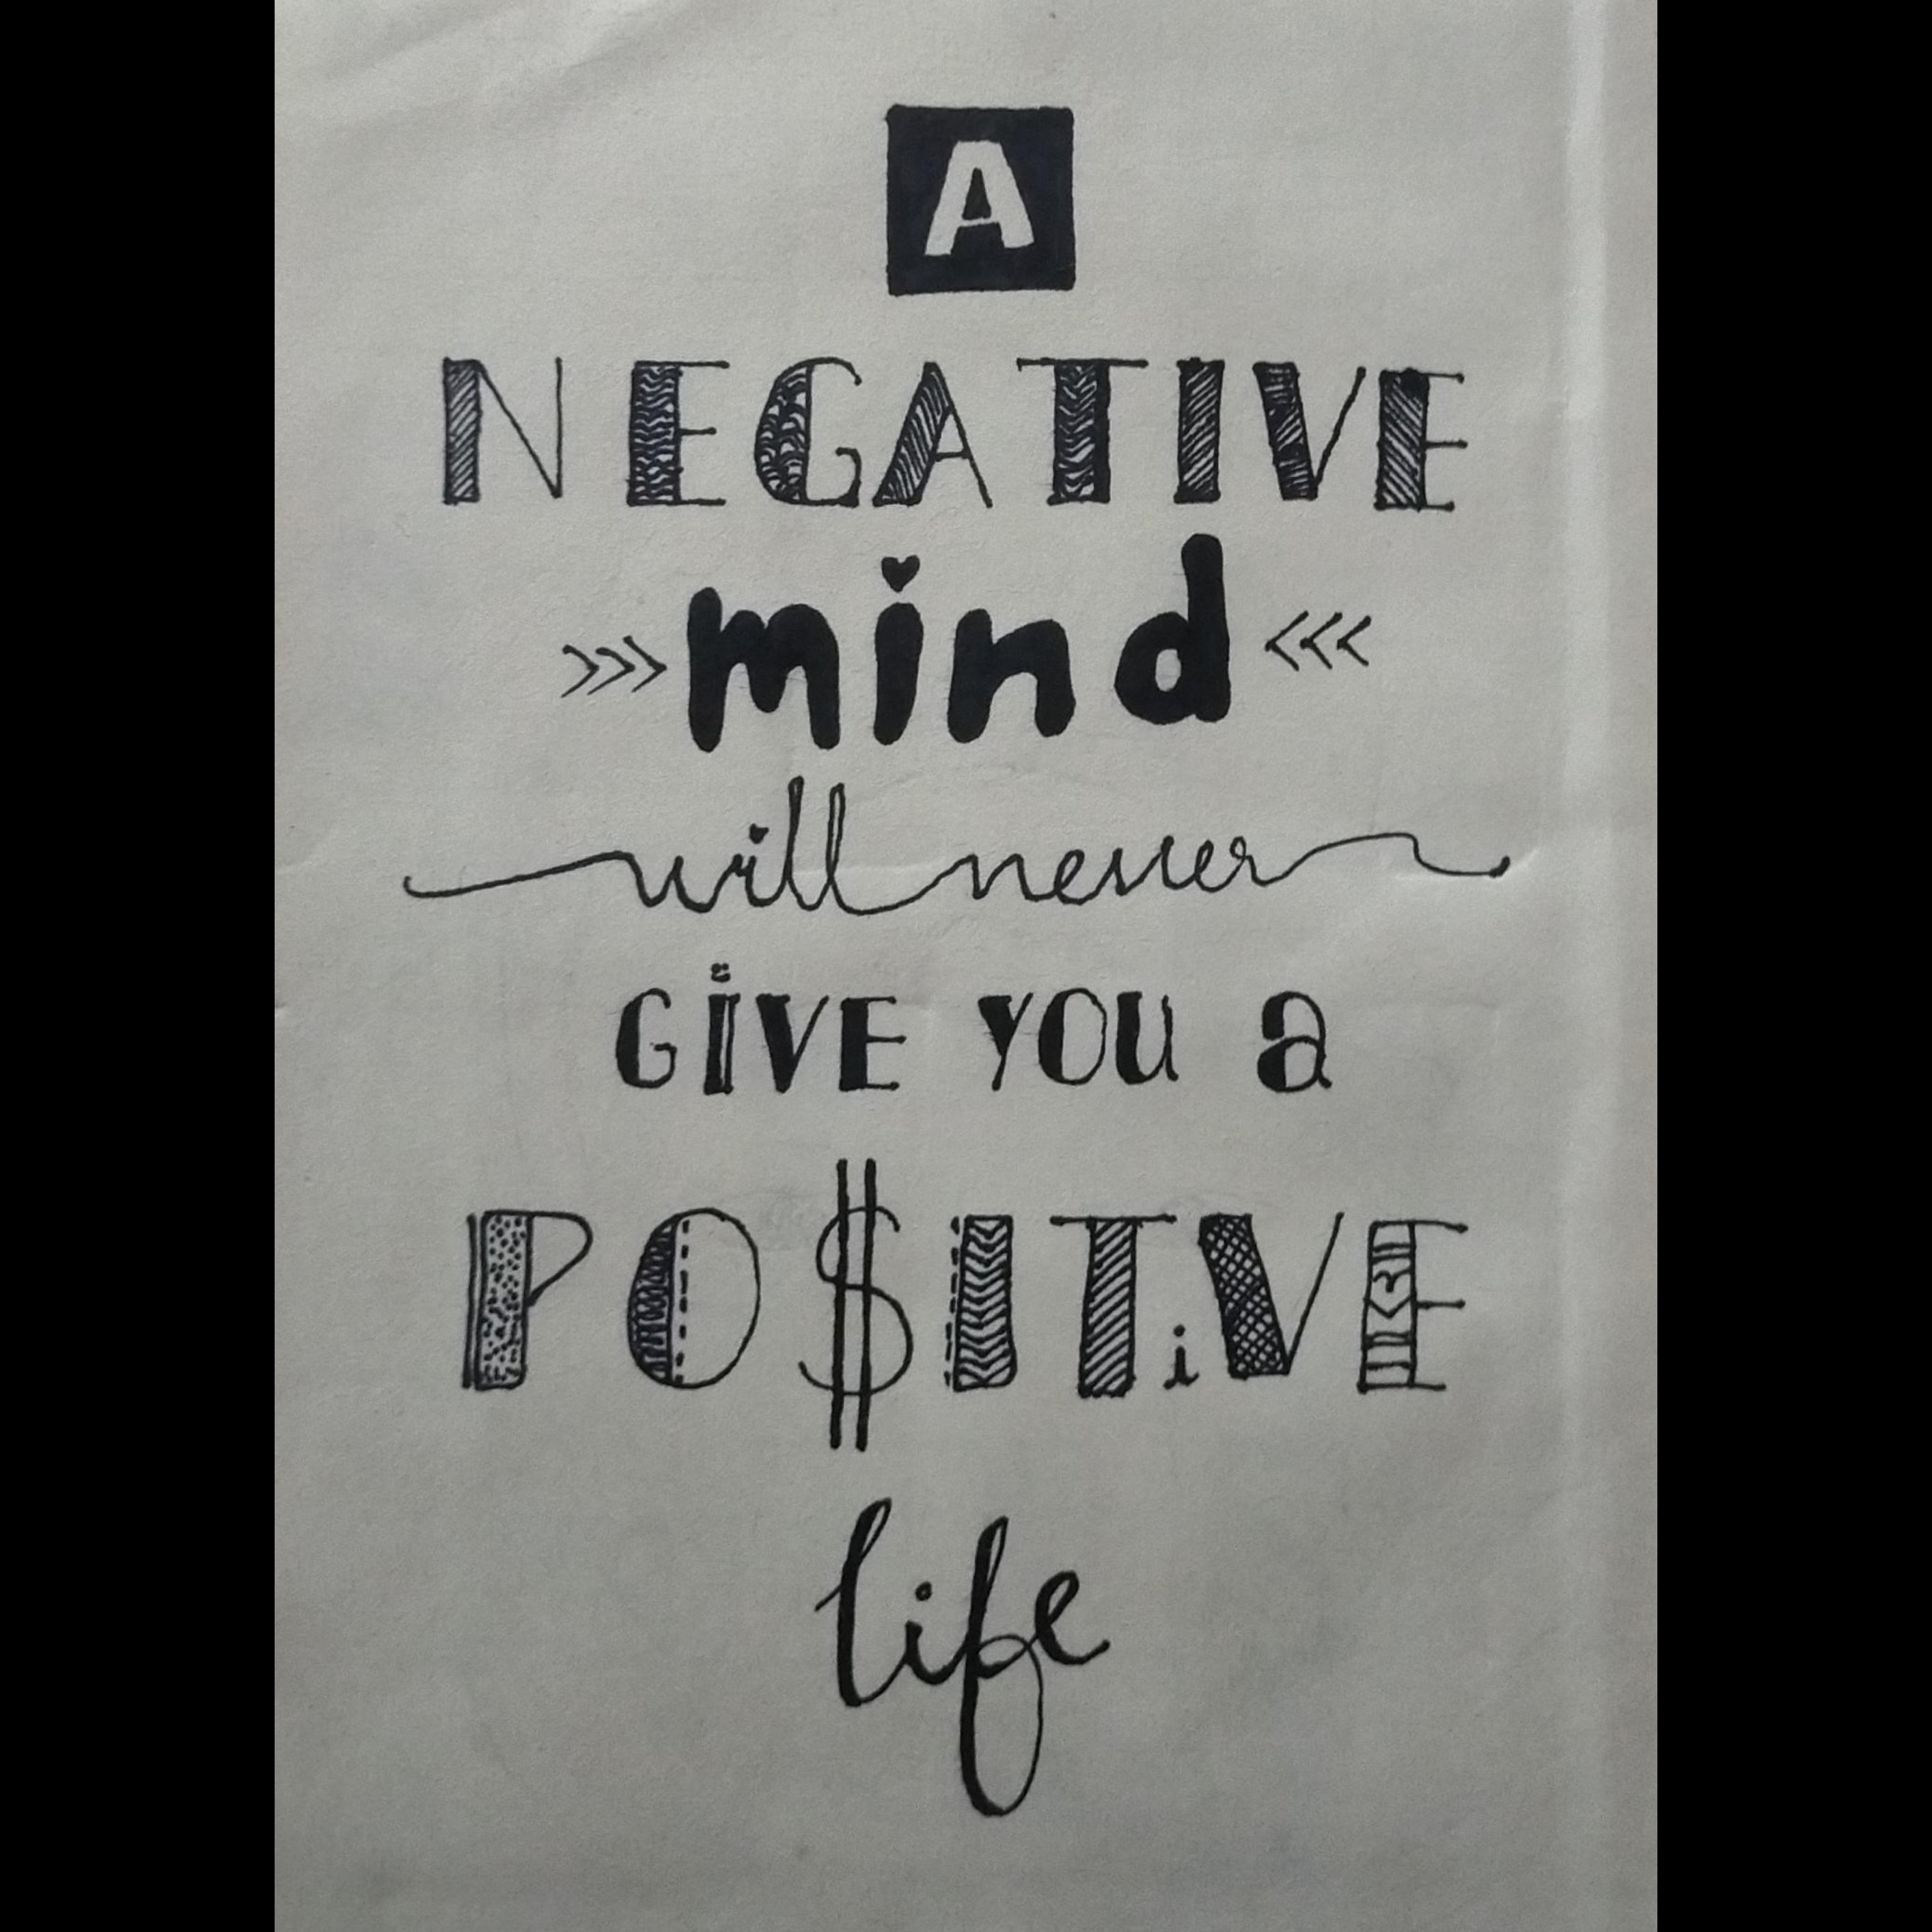 A
NEGATIVE
>>> mind <<<
will never
GiVE YOU a
PO$ITiVE
life